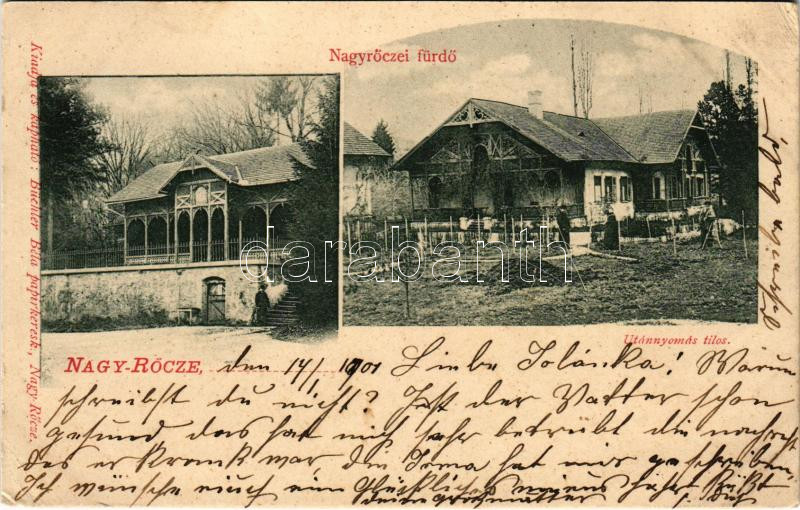 Nagyrőczei fürdő
Kiadja és kapható: Büchler Béla papirkeresk., Nagy Rőcze.
darabanth
Utánnyomás tilos.
NAGY-RŐCZE, den 14/1 1901 Liebe Jolánka! Warum
schreibst du nicht? Ist der Vatter schon
gesund das hat mich sehr betrübt die nachricht
das er krank war, die Irma hat mir geschrieben,
Ich wünsche euch ein Glückliches neues Jahr Küßt
dich deine grossmutter